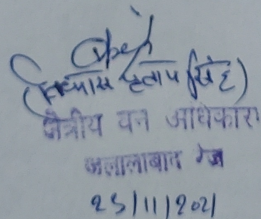 (विकास प्रताप सिंह)
क्षेत्रीय वन अधिकारी
जलालाबाद रेंज
25/11/2021